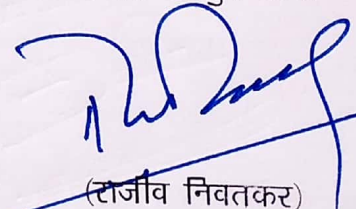 (राजीव निवतकर)